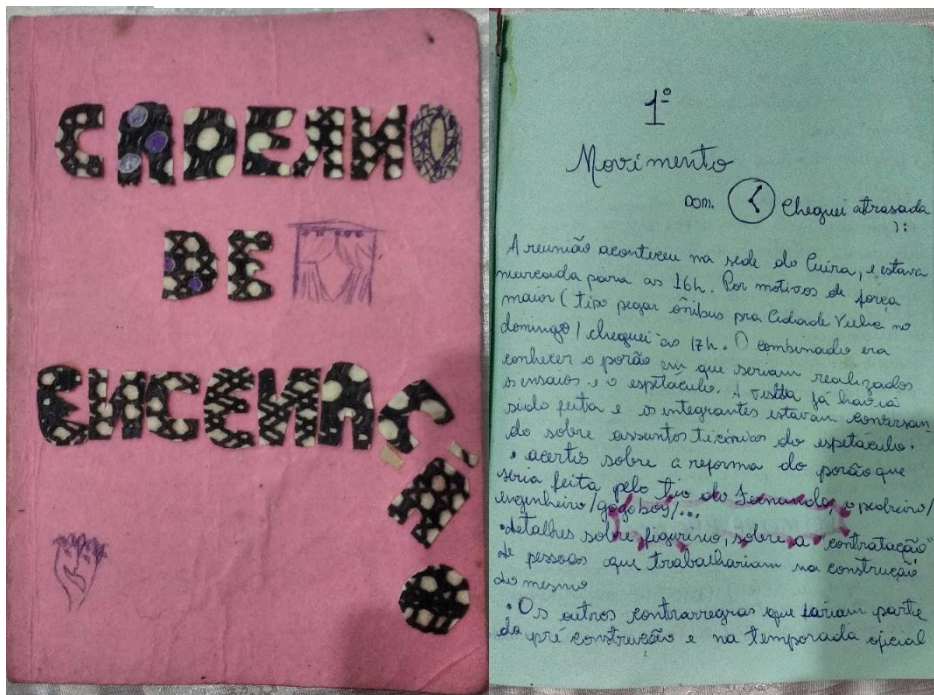 CADERNO
DE
ENCENAÇÃO
1º
Movimento
DOM. Cheguei atrasada
):
A reunião aconteceu na sede do Cuíra, e estava
marcada para as 16h. Por motivos de força
maior (tive pegar ônibus pra Cidade Velha no
domingo) cheguei às 17h. O combinado era
conhecer o porão em que seriam realizados
os ensaios e o espetáculo. A visita já havia
sido feita e os integrantes estavam conversan
do sobre assuntos técnicos do espetáculo.
• acertos sobre a reforma do porão que
seria feita pelo tio do Fernando, o pedreiro/
engenheiro/gogoboy/...
•detalhes sobre figurino, sobre a "contratação"
de pessoas que trabalhariam na construção
do mesmo
•Os outros contrarregras que fariam parte
da pré construção e na temporada oficial